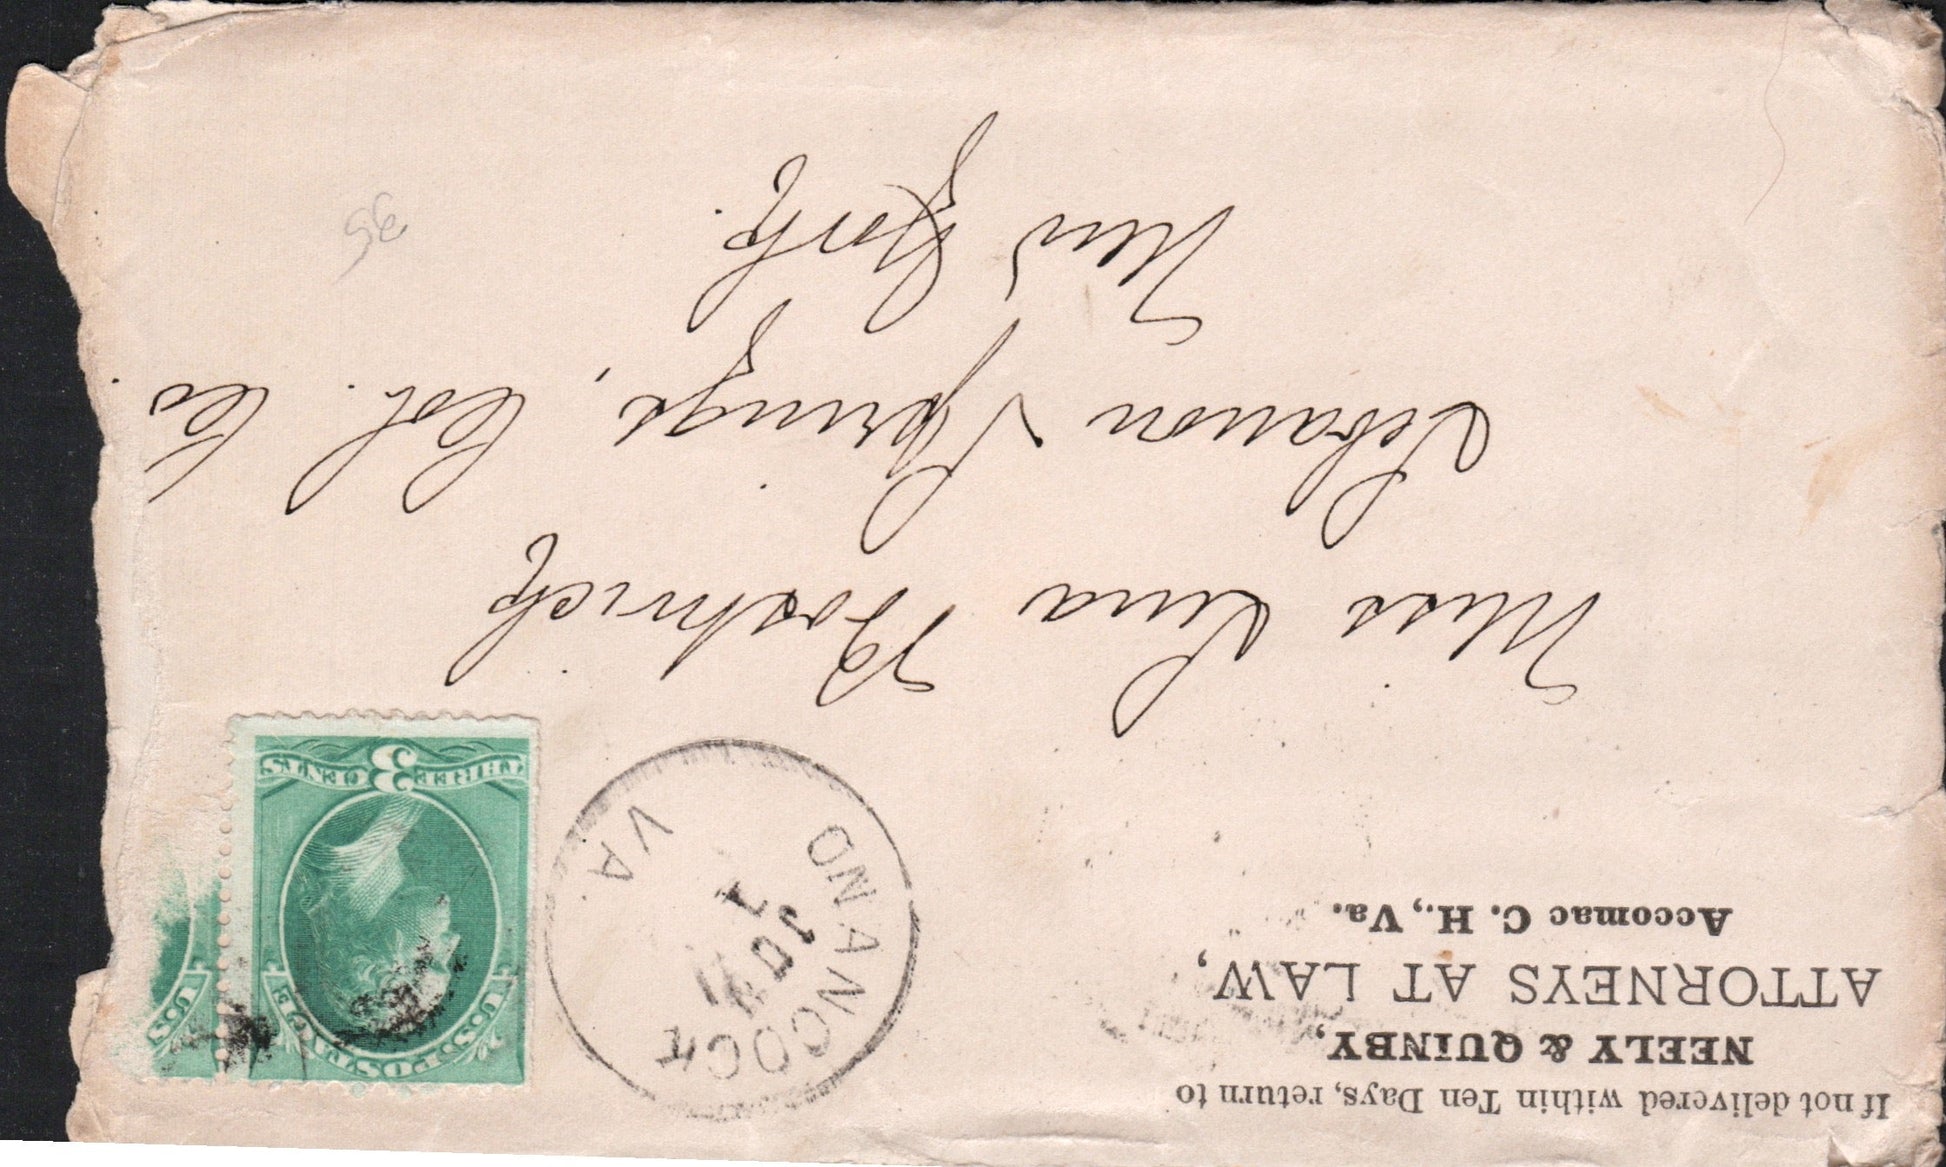 If not delivered within Ten Days, return to
NEELY & QUINBY,
ATTORNEYS AT LAW,
Accomac C. H., Va.
ONANCOCK
JUN
VA.
U.S. POSTAGE
THREE 3 CENTS
U.S.
Miss Lina Bostwick
Lebanon Springs, Col. Co.
New York.